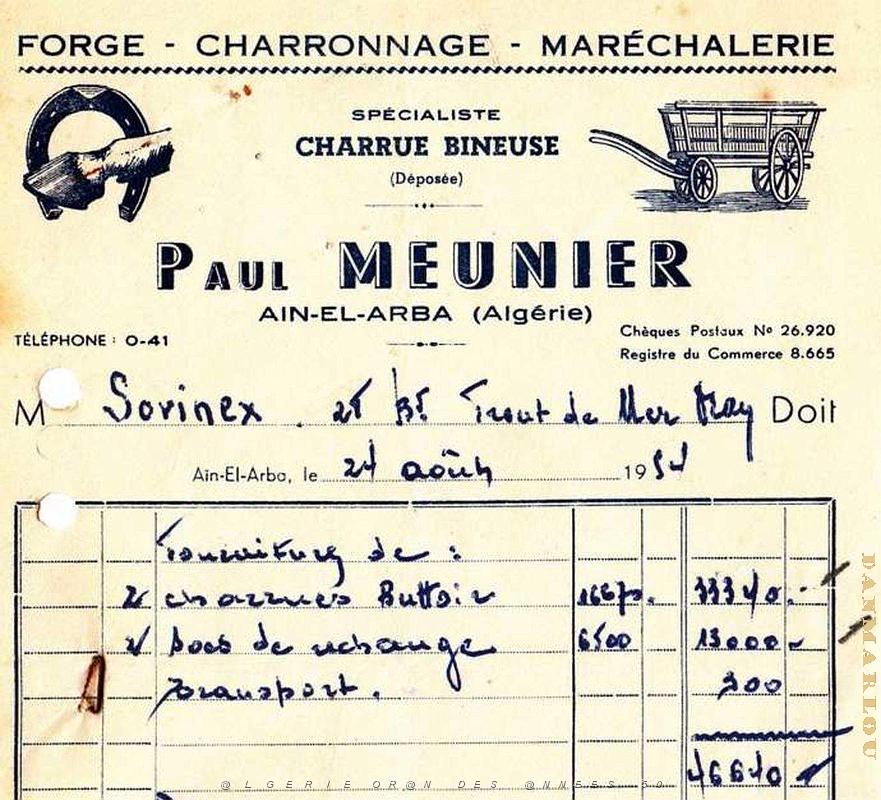 FORGE - CHARRONNAGE - MARÉCHALERIE
SPÉCIALISTE
CHARRUE BINEUSE
(Déposée)
PAUL MEUNIER
AIN-EL-ARBA (Algérie)
TÉLÉPHONE : 0-41
Chèques Postaux Nº 26.920
Registre du Commerce 8.665
M Sovinex Doit
Aïn-El-Arba, le 24 août 1954
Fourniture de :
2 charrues Buttoir 16670. 33340.-
2 socs de rechange 6500 13000-
Transport. 300
46640
DANMARLOU
@LGERIE OR@N DES @NNEES 50